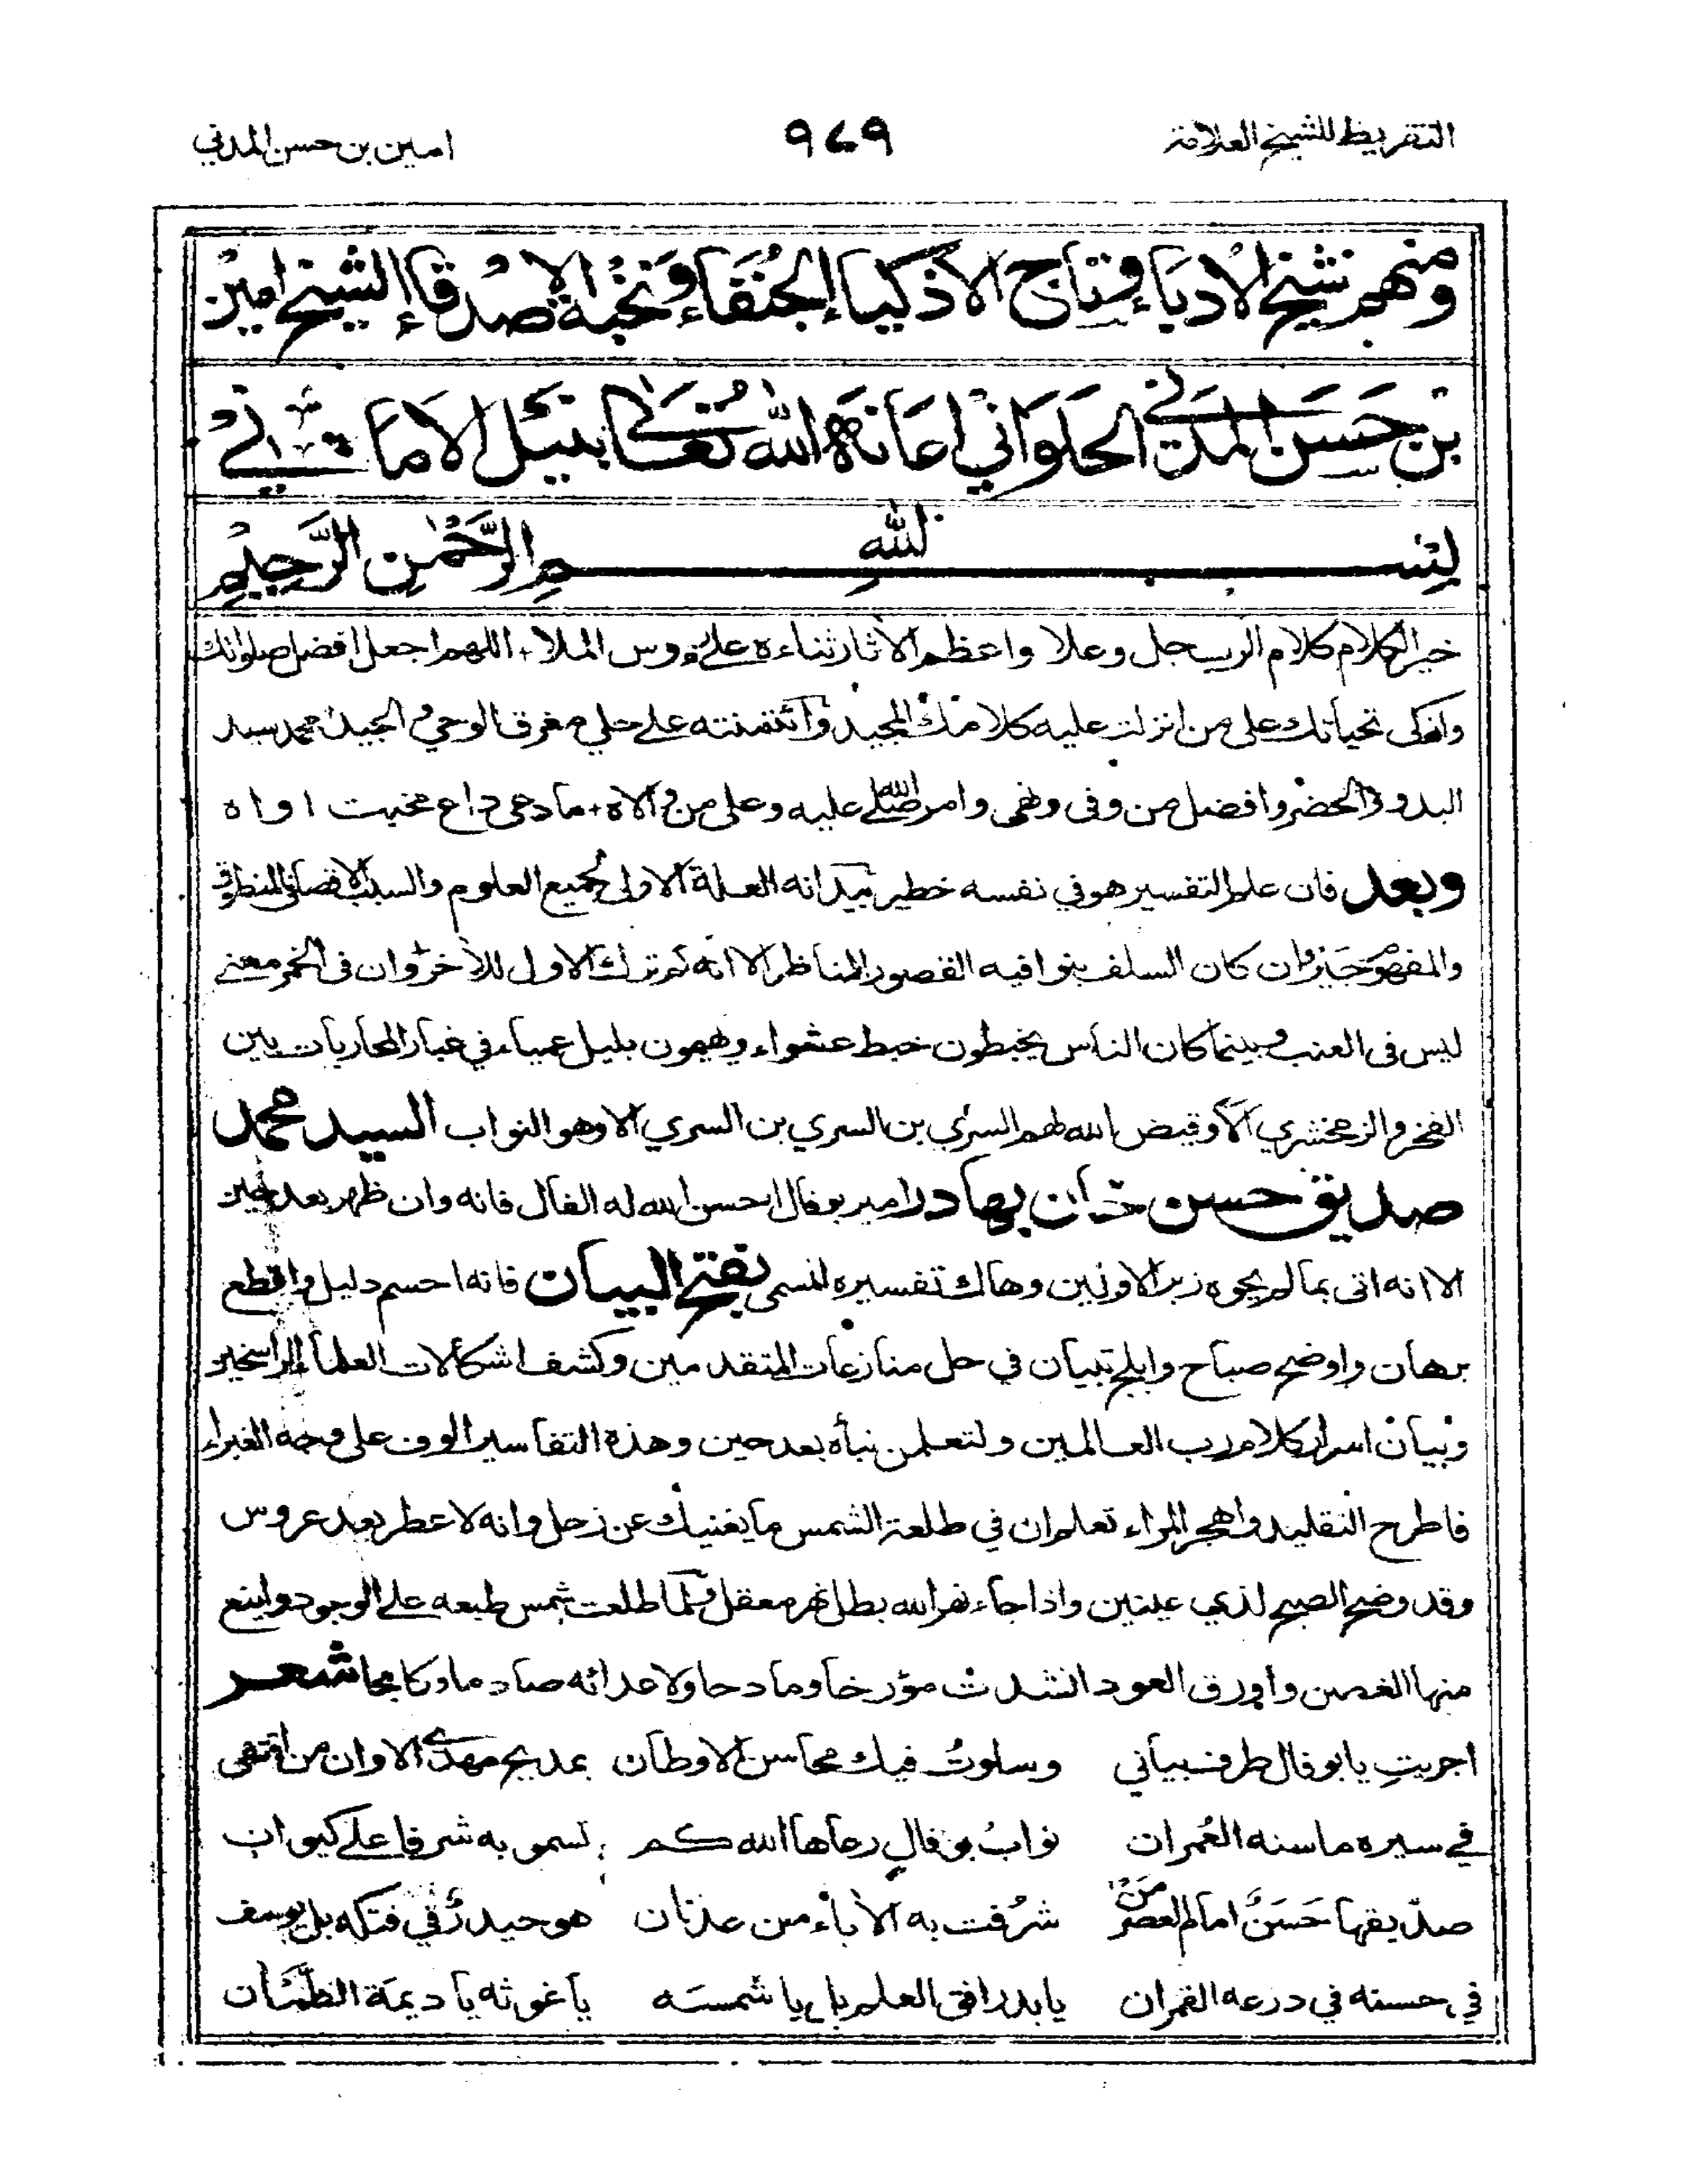 التقريظ للشيخ العلامة ٩٧٩ امين بن حسن المدني
ومنهم شيخ الادباء وتاج الاذكياء الحنفاء ونخبة الاصدقاء الشيخ امين
بن حسن المدني الحلواني اعانه الله تعالى بنيل الاماني
بسم الله الرحمن الرحيم
خير الكلام كلام الرب جل وعلا واعظم الاثار ثناءه على رؤس الملاء اللهم اجعل افضل صلواتك
وازكى تحياتك على من انزلت عليه كلامك المجيد وائتمنته على حلي مفرق الوحي والجيد محمد سيد
البدو والحضر وافضل من وفى ونهى وامر صلى الله عليه وعلى من والاه ما دعى داع مخبت اواه
وبعد فان علم التفسير هو في نفسه خطير بيد انه العلة الاولى لجميع العلوم والسبب الاقصى للمنطوق
والمفهوم وان كان السلف بنوا فيه القصور المناظر الا انه كم ترك الاول للاخر وان في الخمر معنى
ليس في العنب وبينما كان الناس يخبطون خبط عشواء ويهيمون بليل عمياء في غبار المحاربات بين
الفخر والزمخشري الا وقيض الله لهم السري بن السري بن السري الا وهو النواب السيد محمد
صديق حسن خان بهادر امير بوفال احسن الله له الفال فانه وان ظهر بعد حين
الا انه اتى بما لم يحوه زبر الاولين وهاك تفسيره المسمى بفتح البيان فانه احسم دليل واقطع
برهان واوضح صباح وابلج تبيان في حل منازعات المتقدمين وكشف اشكالات العلماء الراسخين
وبيان اسرار كلام رب العالمين ولتعلمن نبأه بعد حين وهذه التفاسير الوف على وجه الغبراء
فاطرح التقليد واهجر المراء تعلم ان في طلعة الشمس ما يغنيك عن زحل وانه لا عطر بعد عروس
وقد وضح الصبح لذي عينين واذا جاء نهر الله بطل نهر معقل ولما طلعت شمس طبعه على الوجود واينع
منها الغصن واورق العود انشدت مؤرخا ومادحا ولاعدائه صادما وكابحا شعر
اجريت يا بوفال طرف بياني وسلوت فيك محاسن الاوطان بمديح مهدي الاوان من اقتفى
في سيره ما سنه العمران نواب بوفال رعاها الله كم تسمو به شرفا على كيوان
صديقها حسن امام العصر من شرفت به الاباء من عدنان هو حيدر في فتكه بل يوسف
في حسنه في درعه القمران يا بدر افق العلم بل يا شمسه يا غوثه يا ديمة الظمئان